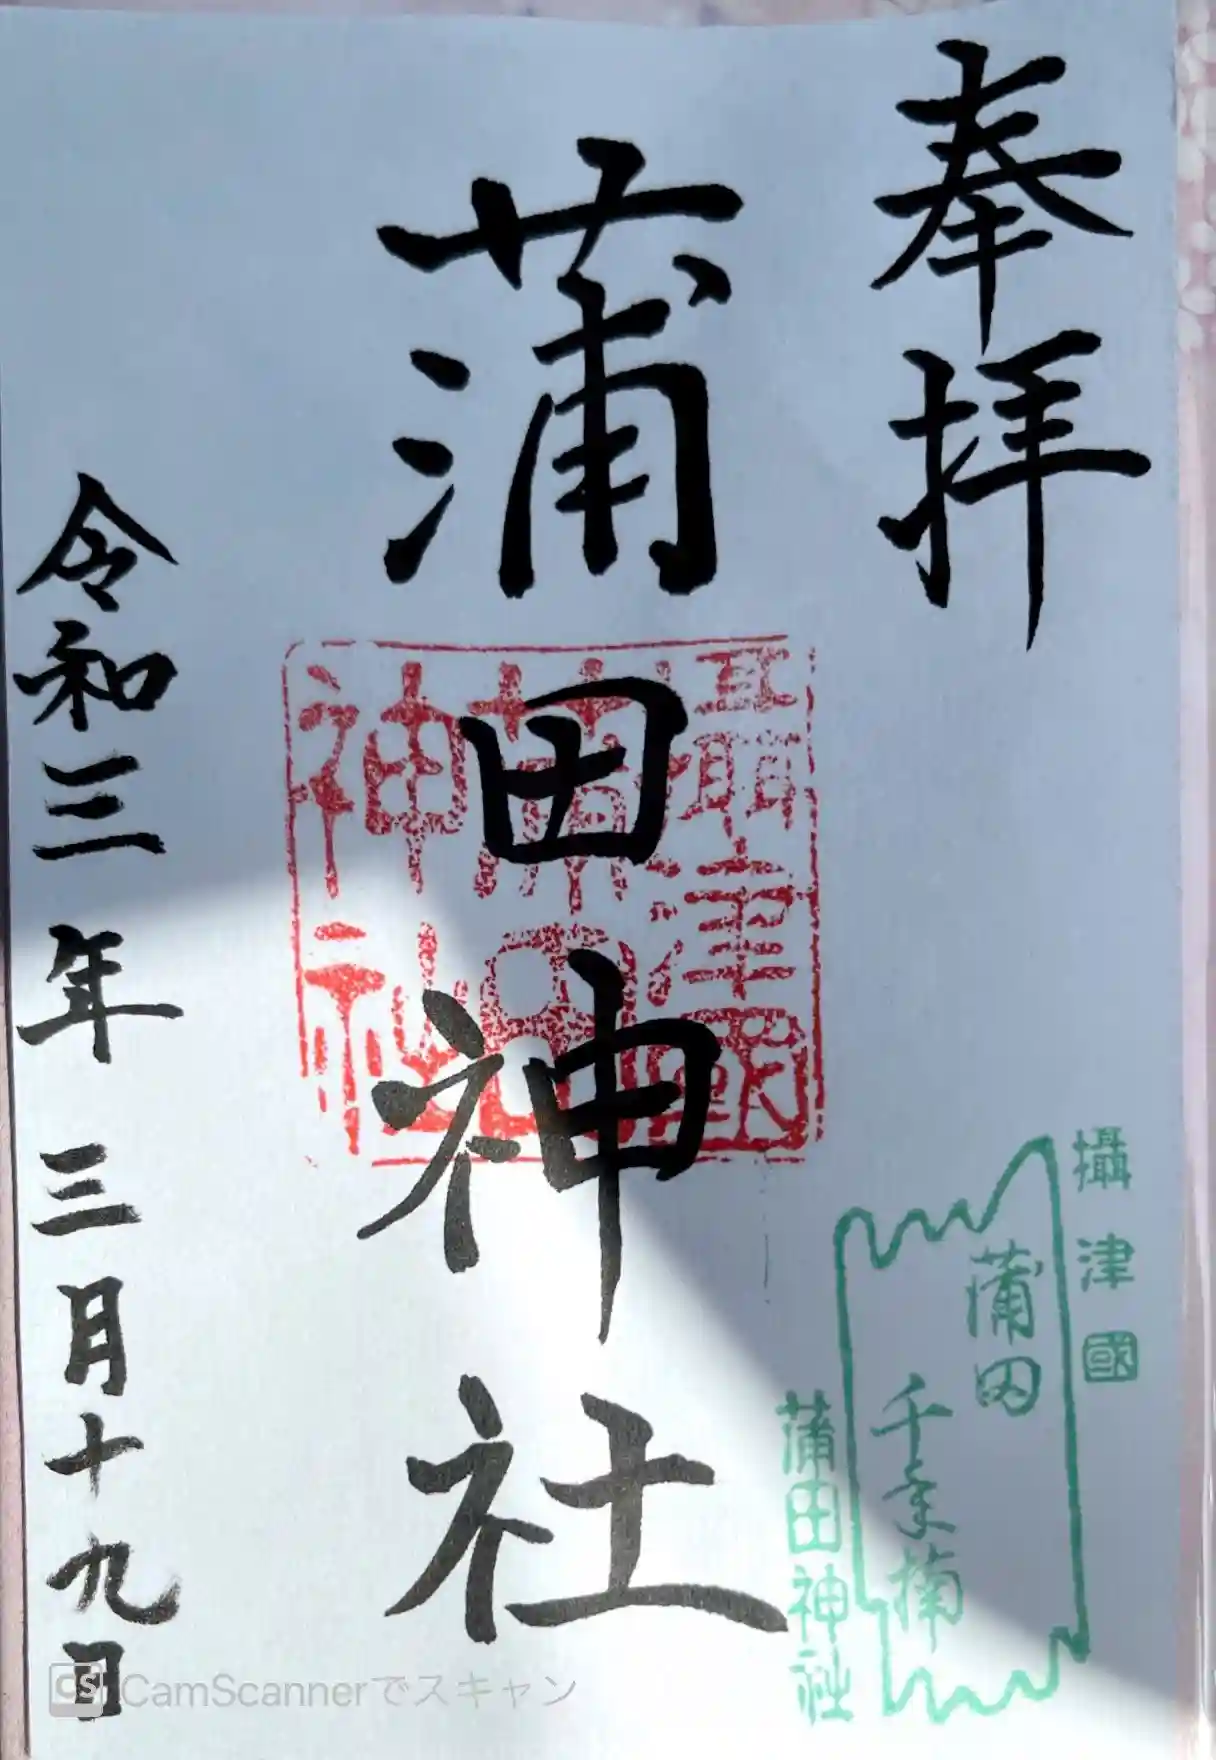 奉拝
蒲田神社
令和三年三月十九日
攝津國
蒲田
神社
攝津國
蒲田
千年楠
蒲田神社
CamScannerでスキャン